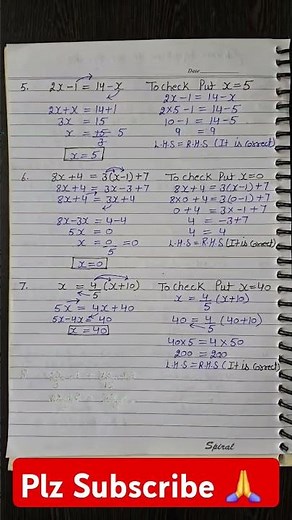 Date
5. 2x-1 = 14-x To check Put x=5
2x-1 = 14-x
2x+x = 14+1 2x5-1 = 14-5
3x = 15 10-1 = 14-5
x = 15 5 9 = 9
3
x=5 L.H.S = R.H.S (It is correct)
6. 8x+4 = 3(x-1)+7 To check Put x=0
8x+4 = 3x-3+7 8x+4 = 3(x-1)+7
8x+4 = 3x+4 8x0+4 = 3(0-1)+7
0+4 = 3x-1+7
8x-3x = 4-4 4 = -3+7
5x = 0 4 = 4
x = 0 =0 L.H.S = R.H.S (It is correct)
5
x=0
7. x = 4 (x+10) To check Put x=40
5 x = 4 (x+10)
5x = 4x+40 5
5x-4x = 40 40 = 4 (40+10)
x = 40 5
40x5 = 4x50
200 = 200
L.H.S = R.H.S (It is correct)
Spiral
Plz Subscribe 🙏